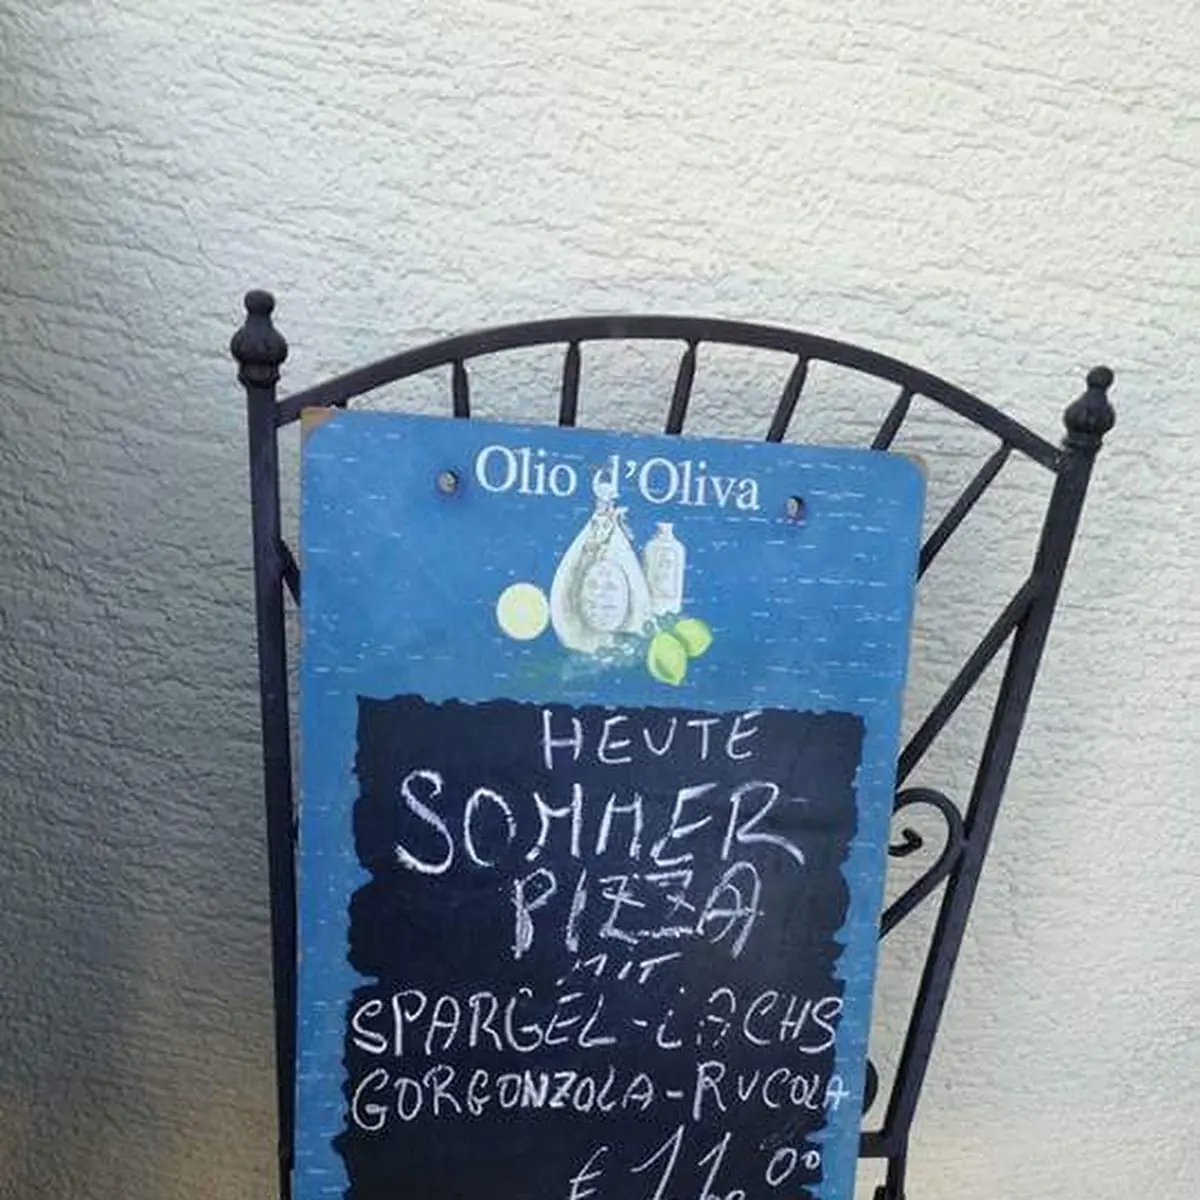 Olio d'Oliva
HEUTE
SOMMER
PIZZA
MIT
SPARGEL-LACHS
GORGONZOLA-RUCOLA
€ 11,00